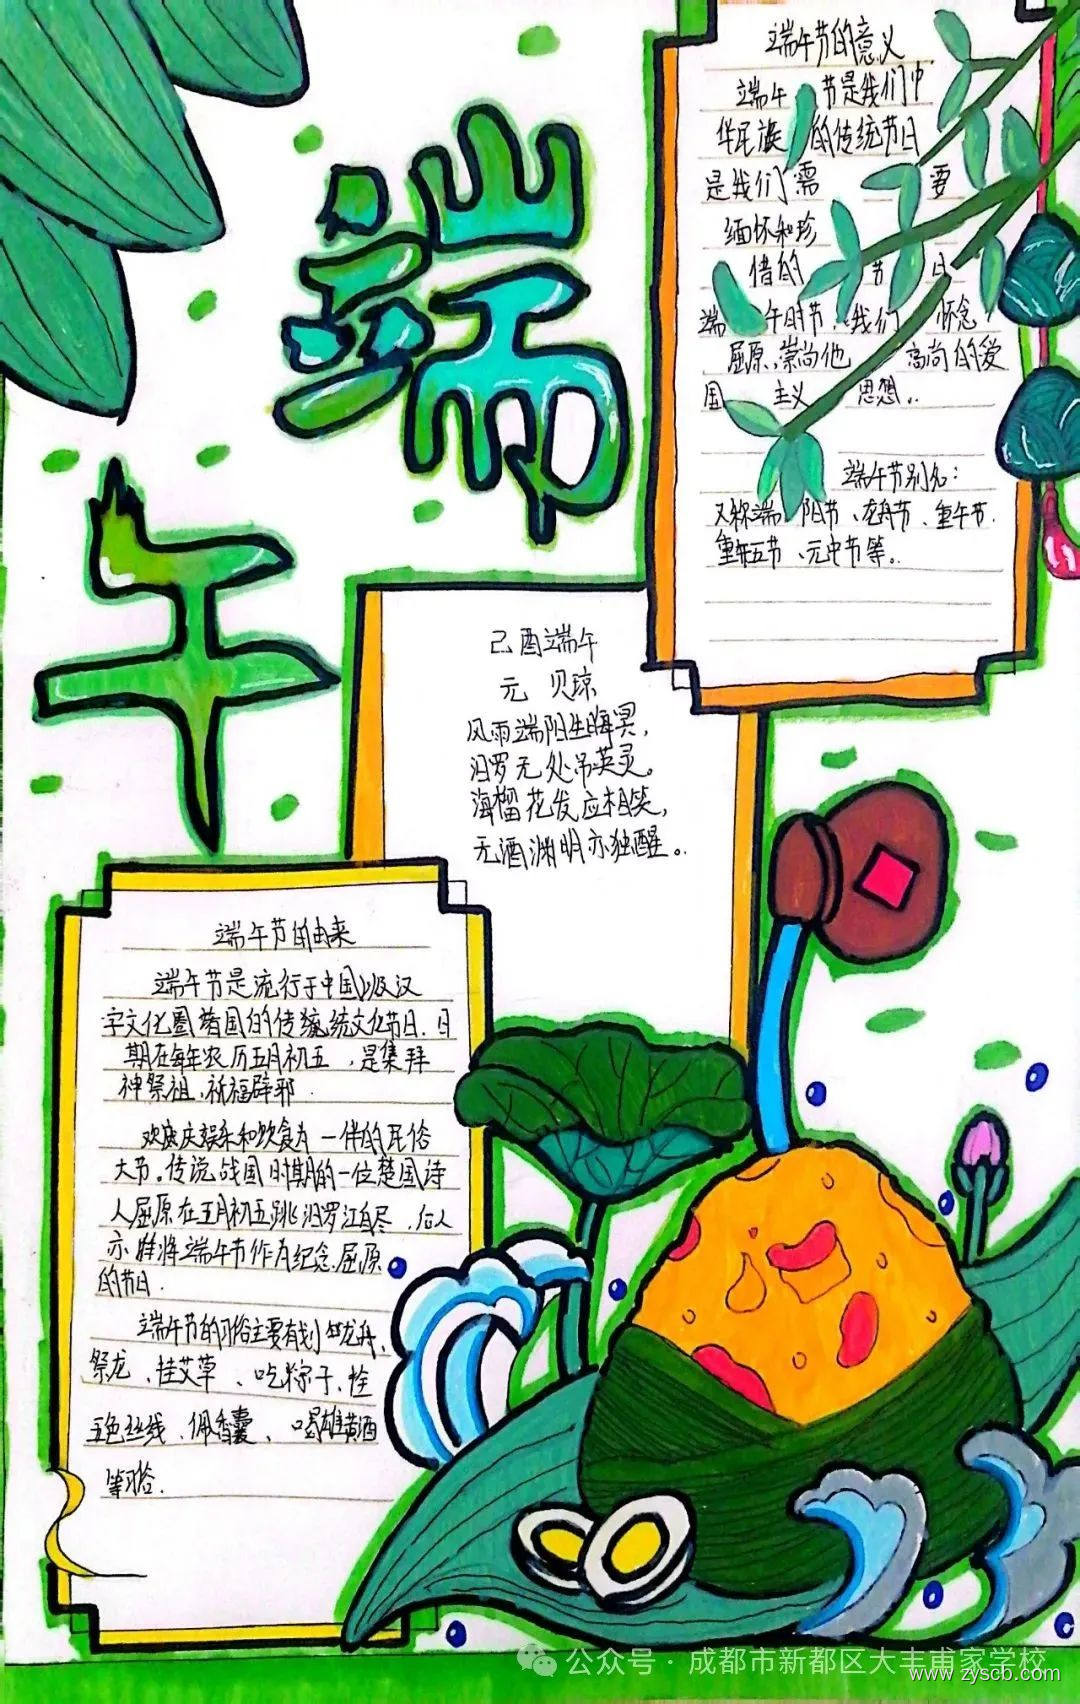 端午
端午节的意义
端午节是我们中
华民族的传统节日
是我们需要
缅怀和珍
借的节日
端午时节,我们怀念
屈原,崇尚他高尚的爱
国主义思想.
端午节别名:
又称端阳节、龙舟节、重午节.
重五节、元中节等。
己酉端午
元 贝琼
风雨端阳生晦冥,
汨罗无处吊英灵。
海榴花发应相笑,
无酒渊明亦独醒。
端午节的由来
端午节是流行于中国以及汉
字文化圈诸国的传统文化节日.日
期在每年农历五月初五,是集拜
神祭祖、祈福辟邪.
欢庆娱乐和饮食为一体的民俗
大节。传说战国时期的一位楚国诗
人屈原在五月初五跳汨罗江自尽,后人
亦将端午节作为纪念屈原
的节日.
端午节的习俗主要有划龙舟、
祭龙、挂艾草、吃粽子、拴
五色丝线、佩香囊、喝雄黄酒
等习俗.
公众号·成都市新都区大丰甫家学校
www.zyscb.com